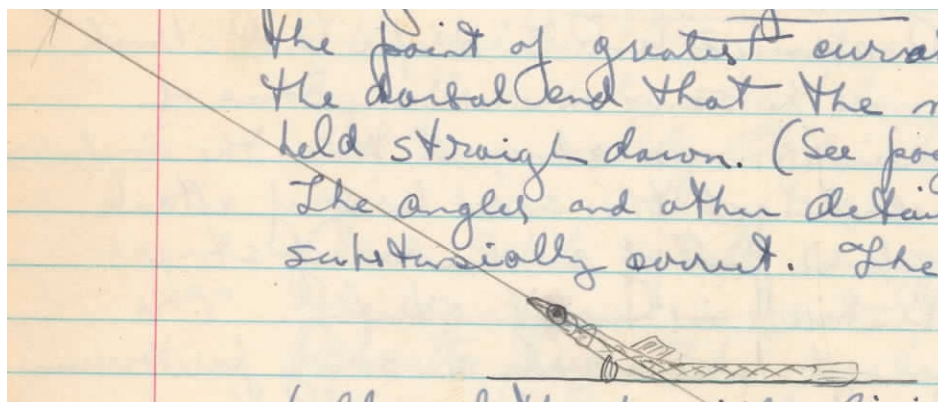 the point of greatest
the dorsal end that the
held straigh down. (See
The angles and other
substansially correct. The